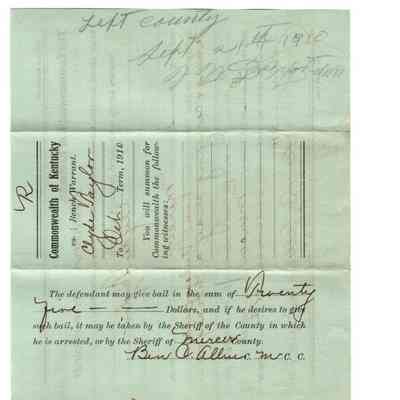 Left county
Sept 21st 1910
R
Commonwealth of Kentucky
vs: Bench Warrant.
Clyde Taylor
To Feb. Term, 1910
You will summon for
Commonwealth the follow-
ing witnesses:
The defendant may give bail in the sum of Twenty
five — — Dollars, and if he desires to give
such bail, it may be taken by the Sheriff of the County in which
he is arrested, or by the Sheriff of Mercer County.
Ben C. Allin C. M. C. C.